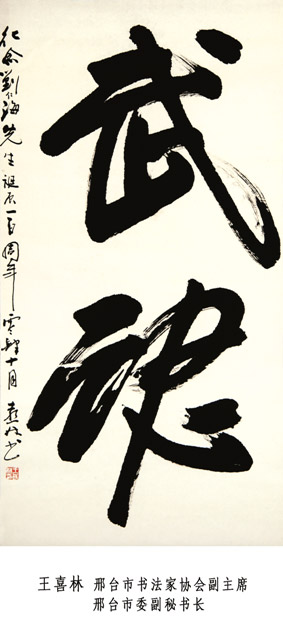 武魂
纪念劉海先生誕辰一百周年零肆十月喜林书
王喜林 邢台市书法家协会副主席
邢台市委副秘书长